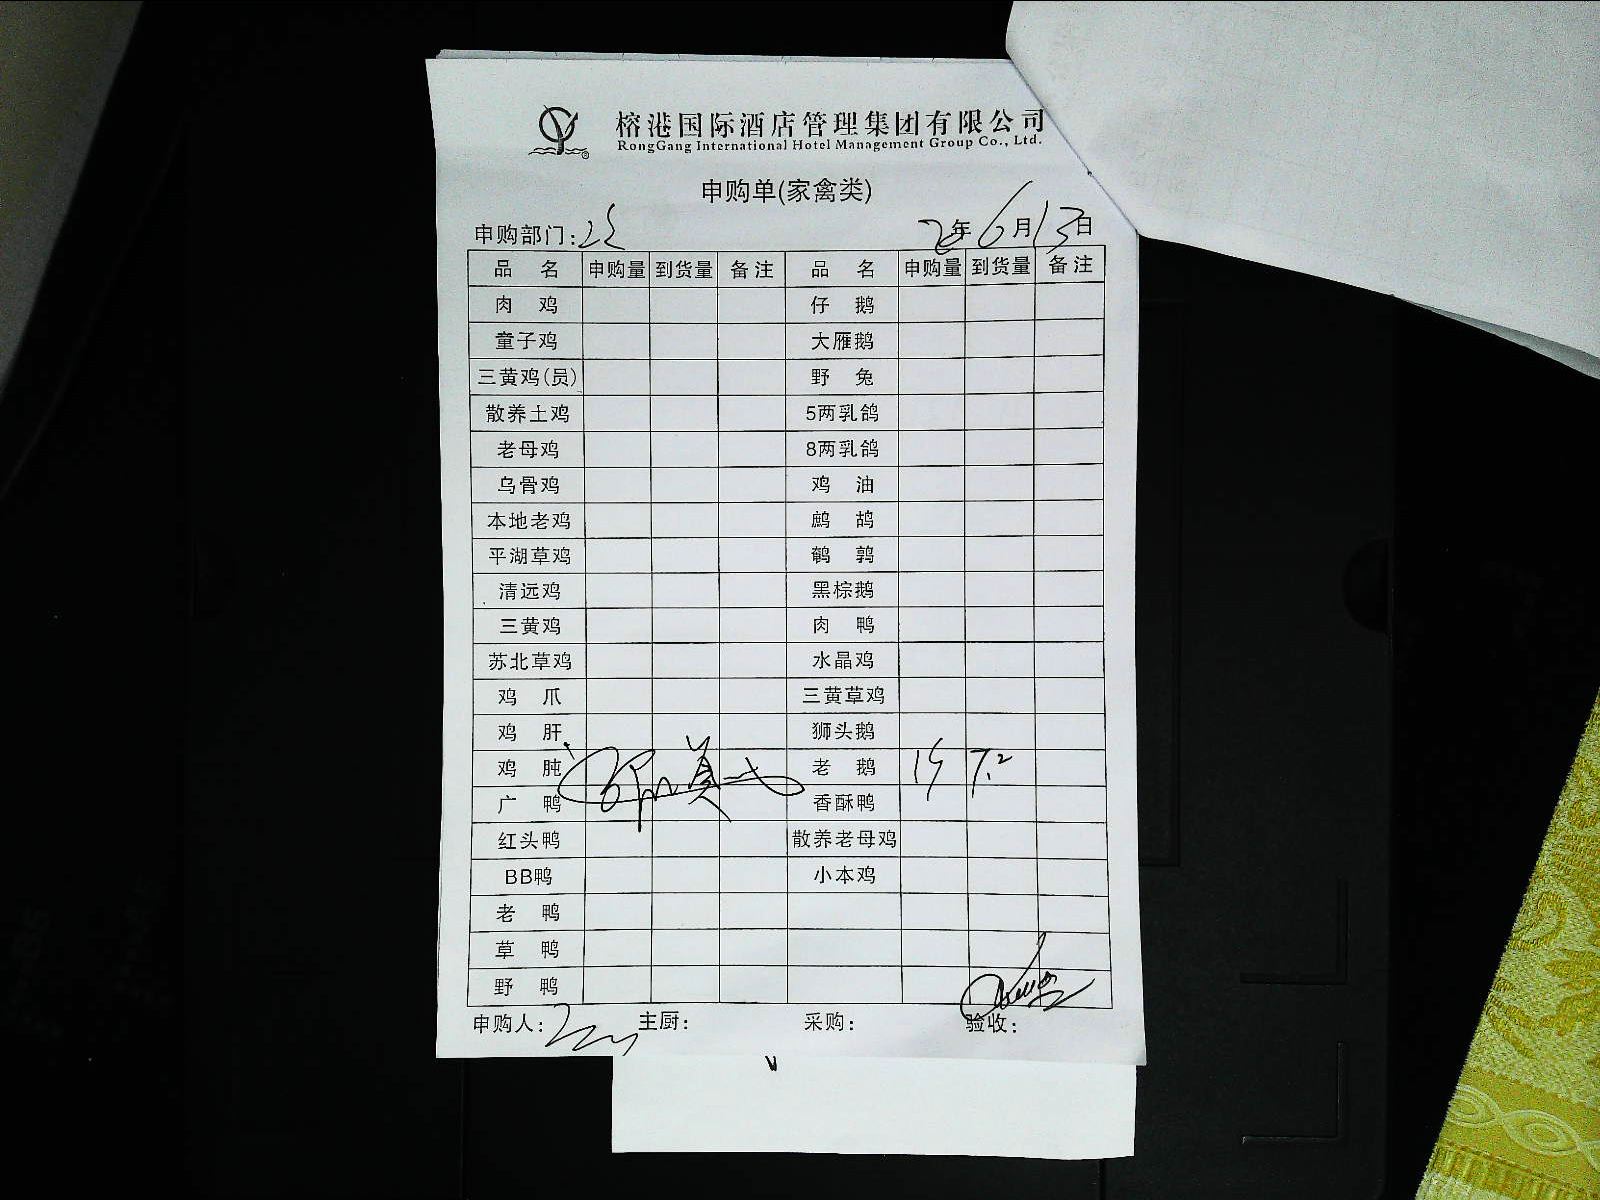 榕港国际酒店管理集团有限公司
RongGang International Hotel Management Group Co., Ltd.
申购单(家禽类)
申购部门:
年 6月13日
品 名 申购量 到货量 备注 品 名 申购量 到货量 备注
肉 鸡 仔 鹅
童子鸡 大雁鹅
三黄鸡(员) 野 兔
散养土鸡 5两乳鸽
老母鸡 8两乳鸽
乌骨鸡 鸡 油
本地老鸡 鹧 鸪
平湖草鸡 鹌 鹑
清远鸡 黑棕鹅
三黄鸡 肉 鸭
苏北草鸡 水晶鸡
鸡 爪 三黄草鸡
鸡 肝 狮头鹅
鸡 肫 老 鹅 7.2
广 鸭 香酥鸭
红头鸭 散养老母鸡
BB鸭 小本鸡
老 鸭
草 鸭
野 鸭
申购人: 主厨: 采购: 验收: